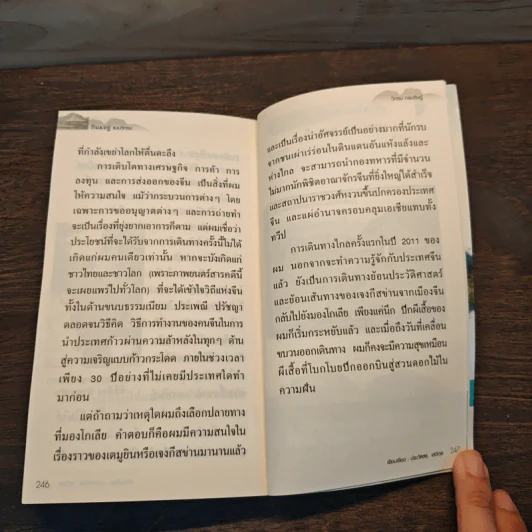 ที่กำลังเขย่าโลกให้ตื่นตะลึง
การเติบโตทางเศรษฐกิจ การค้า การ
ลงทุน และการส่งออกของจีน เป็นสิ่งที่ผม
ให้ความสนใจ แม้ว่ากระบวนการต่างๆ โดย
เฉพาะการขออนุญาตต่างๆ และการถ่ายทำ
จะเป็นเรื่องที่ยุ่งยากเอาการก็ตาม แต่ผมเชื่อว่า
ประโยชน์ที่จะได้รับจากการเดินทางครั้งนี้ไม่ได้
เกิดแก่ผมคนเดียวเท่านั้น หากจะบังเกิดแก่
ชาวไทยและชาวโลก (เพราะภาพยนตร์สารคดีนี้
จะเผยแพร่ไปทั่วโลก) ที่จะได้เข้าใจวิถีแห่งจีน
ทั้งในด้านขนบธรรมเนียม ประเพณี ปรัชญา
ตลอดจนวิธีคิด วิธีการทำงานของคนจีนในการ
นำประเทศก้าวผ่านความล้าหลังในทุกๆ ด้าน
สู่ความเจริญแบบก้าวกระโดด ภายในช่วงเวลา
เพียง 30 ปีอย่างที่ไม่เคยมีประเทศใดทำ
มาก่อน
แต่ถ้าถามว่าเหตุใดผมถึงเลือกปลายทาง
ที่มองโกเลีย คำตอบก็คือผมมีความสนใจใน
เรื่องราวของเตมูยินหรือเจงกีสข่านมานานแล้ว
246
วิกรม กรมดิษฐ์
และเป็นเรื่องน่าอัศจรรย์เป็นอย่างมากที่นักรบ
จากชนเผ่าเร่ร่อนในดินแดนอันแห้งแล้งและ
ห่างไกล จะสามารถนำกองทหารที่มีจำนวน
ไม่มากนักพิชิตอาณาจักรจีนที่ยิ่งใหญ่ได้สำเร็จ
และสถาปนาราชวงศ์หงวนขึ้นปกครองประเทศ
จีน และแผ่อำนาจครอบคลุมเอเชียแทบทั้ง
ทวีป
การเดินทางไกลครั้งแรกในปี 2011 ของ
ผม นอกจากจะทำความรู้จักกับประเทศจีน
แล้ว ยังเป็นการเดินทางย้อนประวัติศาสตร์
และย้อนเส้นทางของเจงกีสข่านจากเมืองจีน
กลับไปยังมองโกเลีย เพียงแค่นึก ปีกผีเสื้อของ
ผมก็เริ่มกระหยับแล้ว และเมื่อถึงวันที่เคลื่อน
ขบวนออกเดินทาง ผมก็คงจะมีความสุขเหมือน
ผีเสื้อที่โบกโบยปีกออกบินสู่สวนดอกไม้ใน
ความฝัน
เรียบเรียง : ประวิทย์